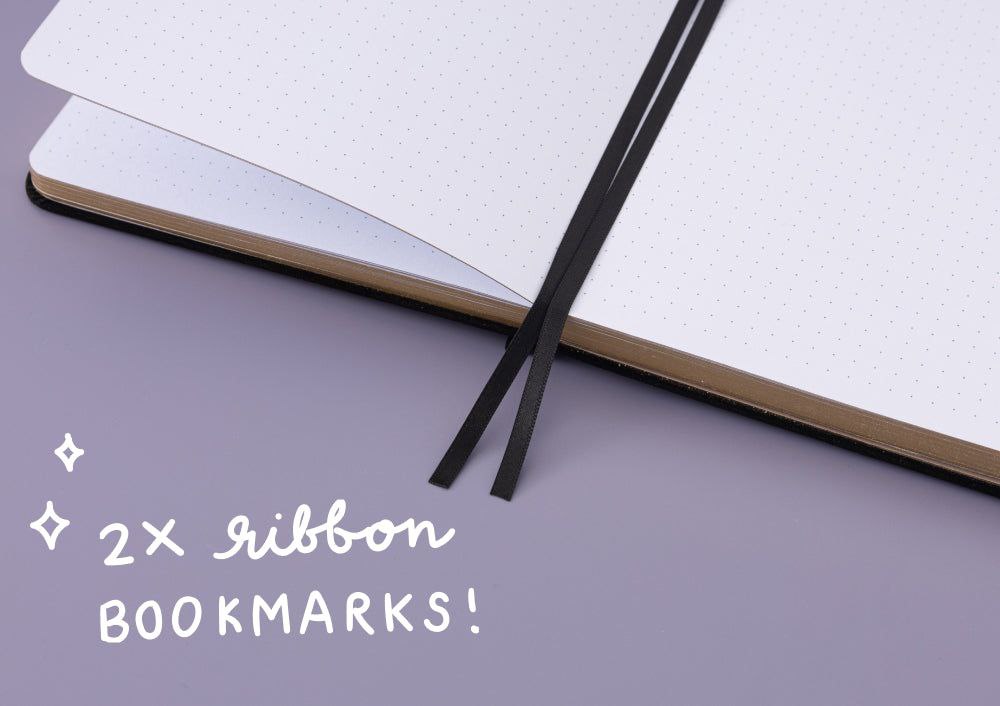 2x ribbon
BOOKMARKS!